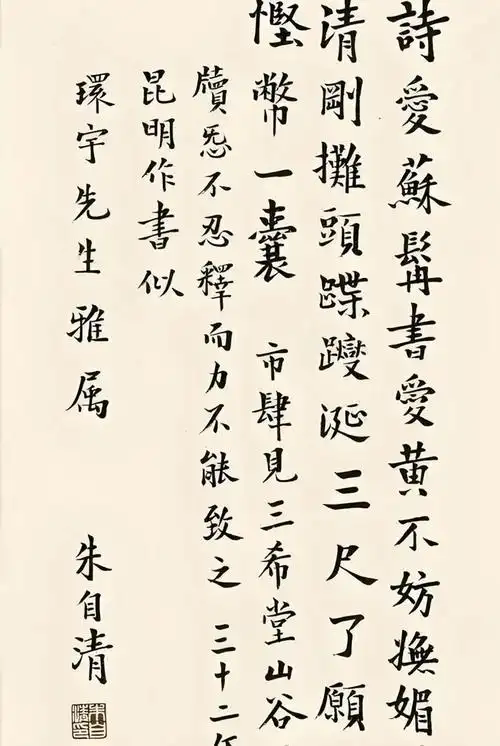 詩愛蘇髯書愛黄不妨嫵媚
清剛攤頭蹀躞涎三尺了願
慳幣一囊 市肆見三希堂山谷
牘㤅不忍釋而力不能致之 三十二年
昆明作書似
環宇先生雅属
朱自清